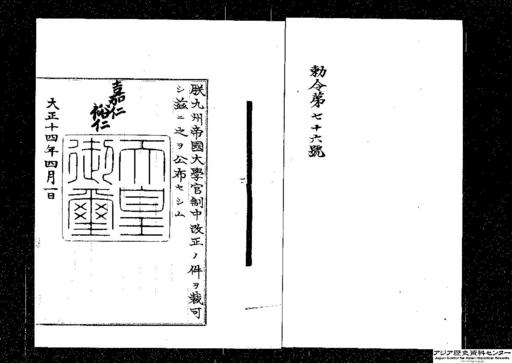 勅令第七十六號
朕九州帝國大學官制中改正ノ件ヲ裁可
シ茲ニ之ヲ公布セシム
嘉仁
裕仁
天皇
御璽
大正十四年四月一日
アジア歴史資料センター
Japan Center for Asian Historical Records